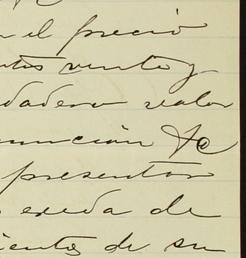 el precio
ntos veinte y
dadero valor
nuncian &c
presentar
exeda de
cientos de su